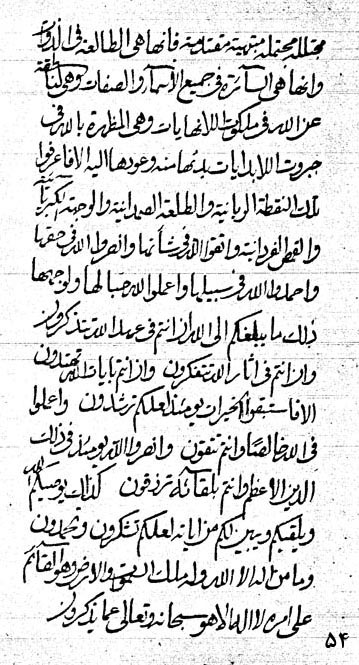 مجللة محتملة مبتهية مقتدمة فانها هي الطالعة في الذوات
وانها هي السائرة في جميع الاسماء والصفات وهي الناطقة
عن الله في ملكوت اللانهايات وهي المظهرة بالله في
جبروت اللابدايات بدئها منه وعودها اليه الا فاعرفوا
تلك النقطة الربانية والطلعة الصمدانية والوجهة الكبريائية
والقمص الفردانية واتقوا الله في شأنها وانصروا الله في حقها
واحمدوا الله في سبيلها واعملوا لله حبا لها ولوجهها
ذلك ما يبلغكم الى الله ان انتم في عهد الله تتذكرون
وان انتم في اثار الله تتفكرون وان انتم بايات الله تهتدون
الا فاستبقوا الخيرات يومئذ لعلكم ترشدون واعملوا
في الله خالصا وانتم تتقون وانصروا الله يومئذ في ذلك
الدين الاعظم وانتم بلقائه ترزقون كذلك يوصيكم الله
ويلقيكم ويبين لكم من اياته لعلكم تشكرون وتحمدون
وما من اله الا الله وله ملك السموات والارض وهو القائم
على امره لا اله الا هو سبحانه وتعالى عما يذكرون
۵۴